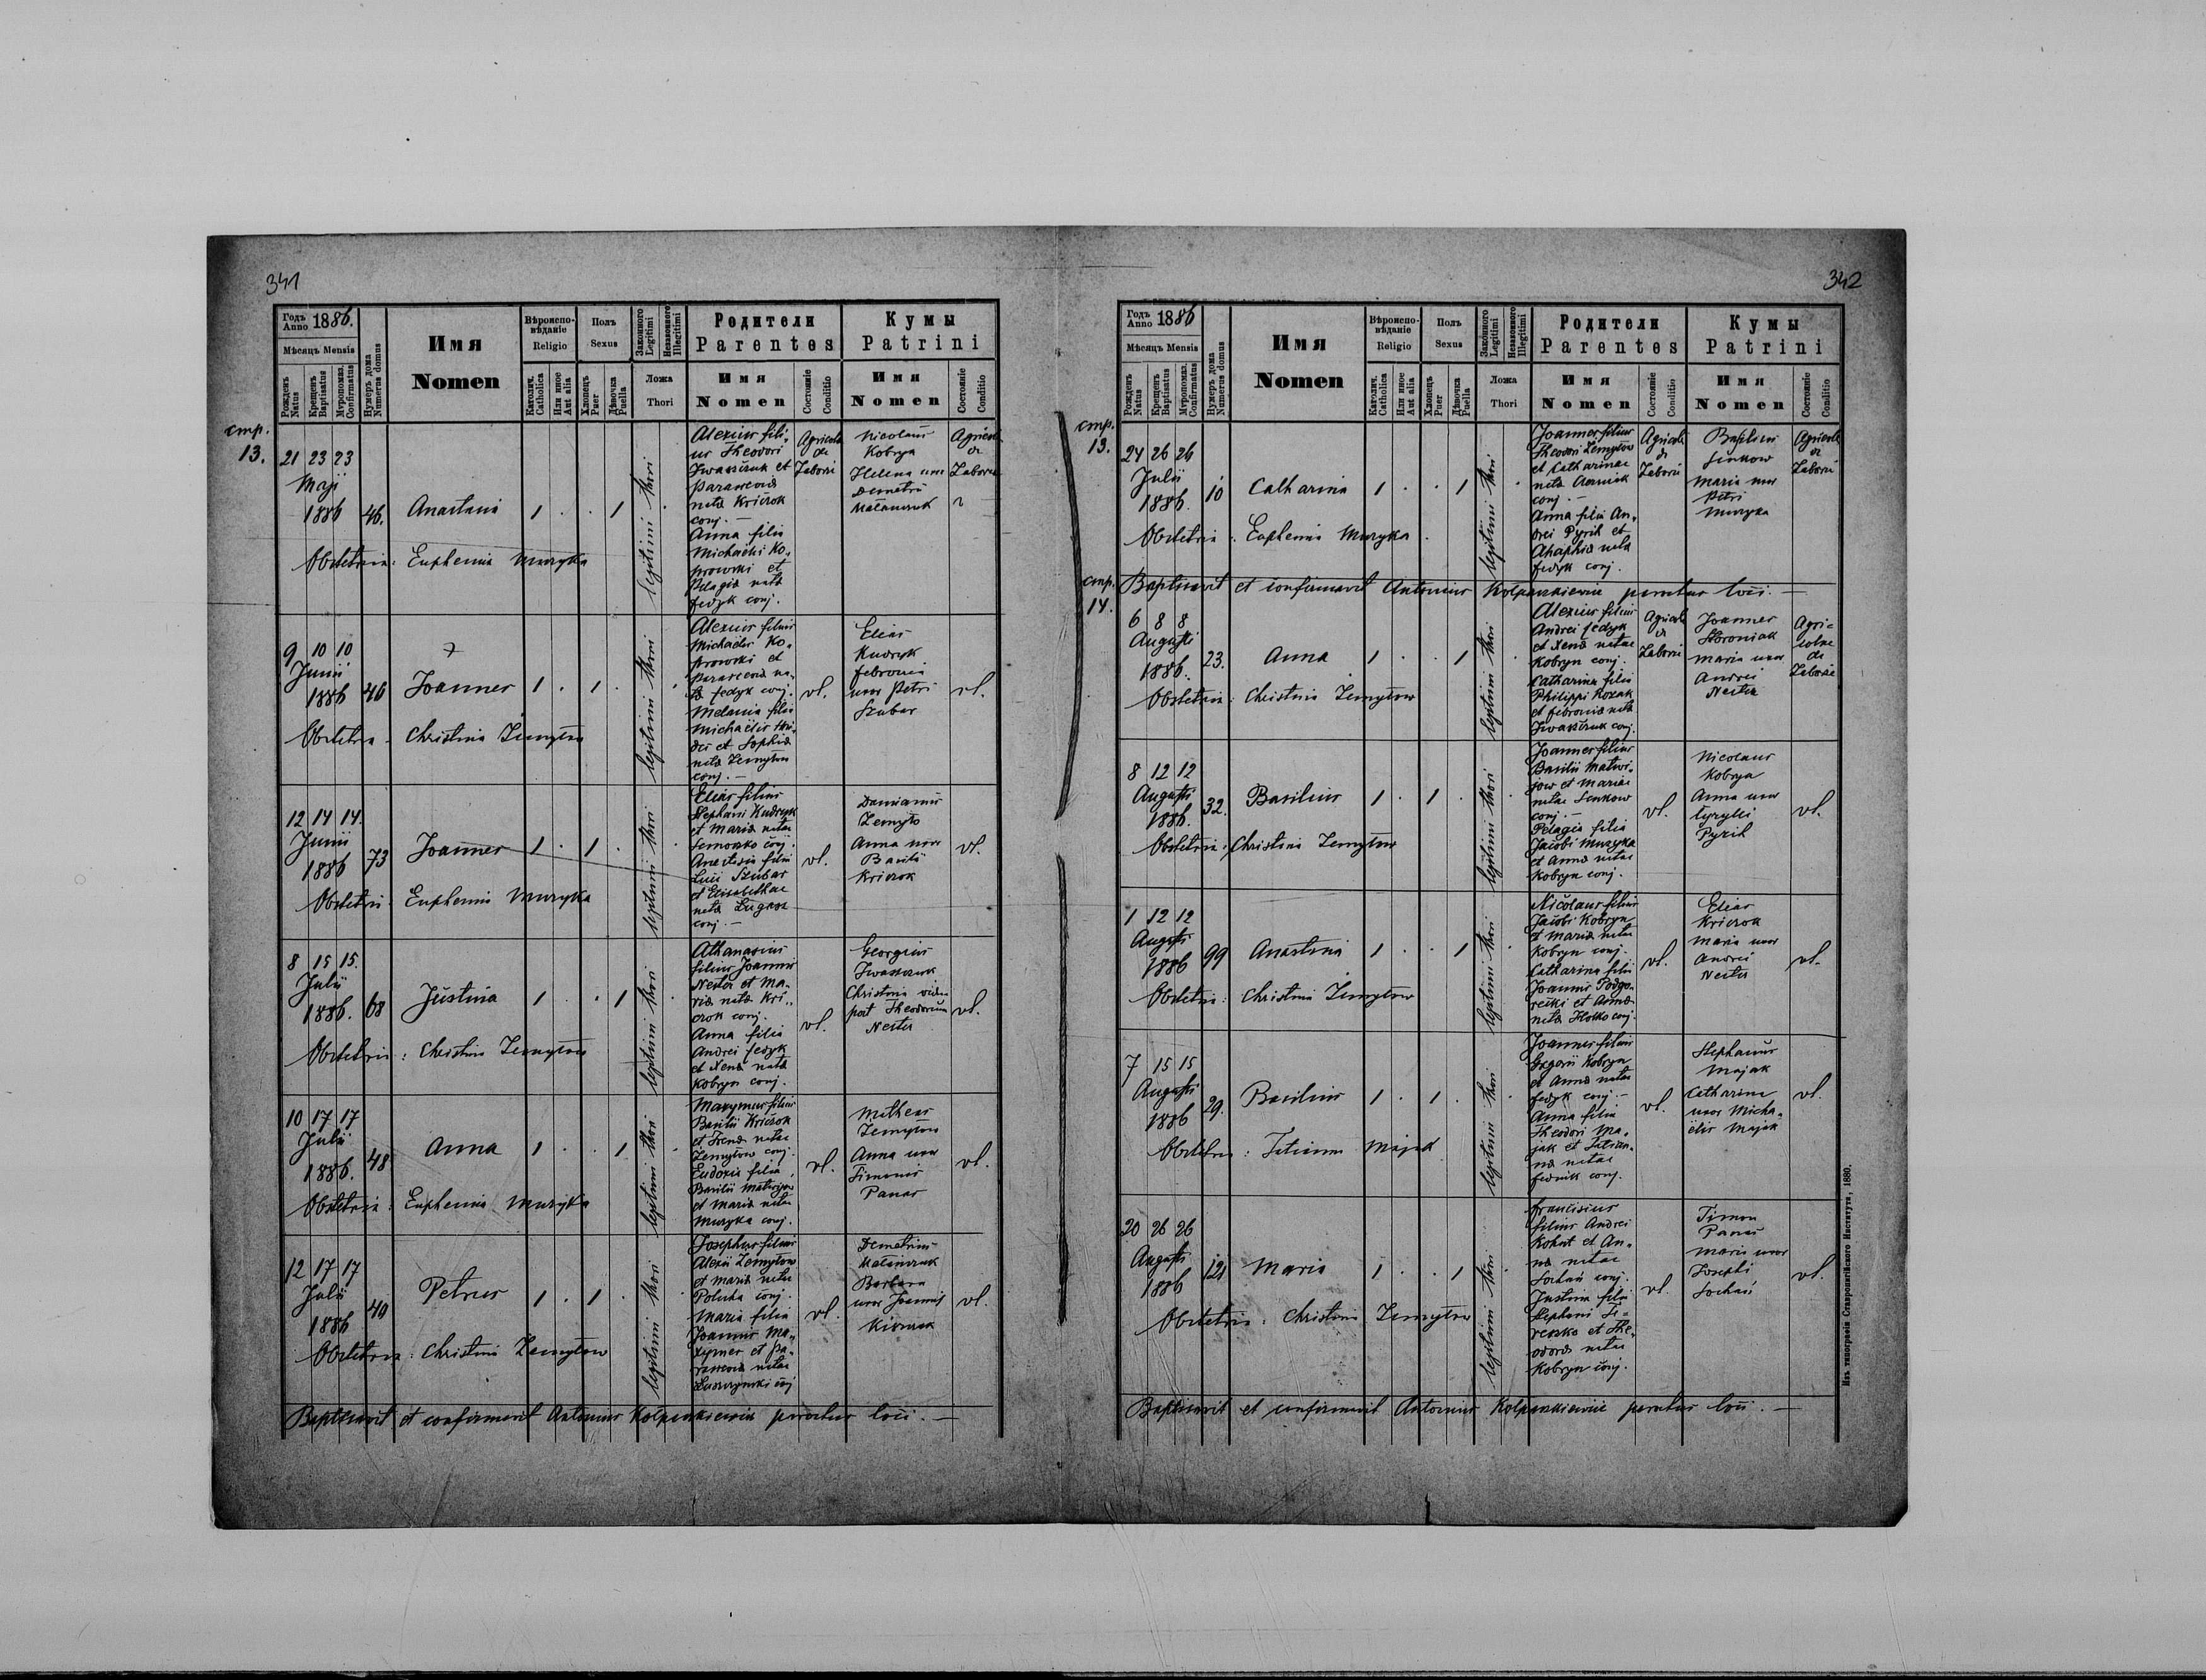 341
Годъ Anno 1886.
Мѣсяцъ Mensis
Рожденъ Natus
Крещенъ Baptisatus
Мѵропомаз. Confirmatus
Нумеръ дома Numerus domus
Имя
Nomen
Вѣроиспо-
вѣданіе
Religio
Католич. Catholica
Или иное Aut alia
Полъ
Sexus
Хлопецъ Puer
Дѣвочка Puella
Законного Legitimi
Незаконного Illegitimi
Ложа
Thori
Родители
Parentes
Имя
Nomen
Состояніе Conditio
Кумы
Patrini
Имя
Nomen
Состояніе Conditio
стр.
13.
21 23 23
Maji
1886 46.
Anastasia
1 . . 1
legitimi thori
Alexius fili-
us Theodori
Iwasczuk et
Parascevia
nata Kriczok
conj. —
Anna filia
Michaelis Ko-
prowski et
Pelagia nata
Fedyk conj.
Agricola
de
Zaborze
Nicolaus
Kobryn
Helena uxor
Demetrii
Malanczuk
Agricola
de
Zaborze
Obstetrix: Euphemia Muzyka
9 10 10
Junii
1886 46
Joannes
1 . 1 .
legitimi thori
Alexius filius
Michaelis Ko-
prowski et
Parascevia na-
ta Fedyk conj.
Melania filia
Michaelis
et Sophia
nata Zemytow
conj. —
vl.
Elias
Kudryk
Febronia
uxor Petri
Szubar
vl.
Obstetrix Christina Zemytow
12 14 14.
Junii
1886 73
Joannes
1 . 1 .
legitimi thori
Elias filius
Stephani Kudryk
et Maria natae
Semoczko conj.
Anastasia filia
Lucii Szubar
et Elisabethae
nata Lugosz
conj. —
vl.
Damianus
Zemyto
Anna uxor
Basilii
Kriczok
vl.
Obstetrix: Euphemia Muzyka
8 15 15.
Julii
1886. 68
Justina
1 . . 1
legitimi thori
Athanasius
filius Joannis
Nester et Ma-
ria nata Kri-
czok conj.
Anna filia
Andrei Fedyk
et Xenia nata
Kobryn conj.
vl.
Georgius
Iwasczuk
Christina vidua
post Theodorum
Nester
vl.
Obstetrix: Christina Zemytow
10 17 17
Julii
1886. 48
Anna
1 . . 1
legitimi thori
Maxymus filius
Basilii Kriczok
et Irena natae
Zemytow conj.
Eudoxia filia
Basilii Matwijow
et Maria natae
Muzyka conj.
vl.
Matheus
Zemytow
Anna uxor
Timonis
Panas
vl.
Obstetrix: Euphemia Muzyka
12 17 17
Julii
1886 40
Petrus
1 . 1 .
legitimi thori
Josephus filius
Alexii Zemytow
et Maria natae
Polucha conj.
Maria filia
Joannis Ma-
xymer et Pa-
rascevia natae
Laszczynski conj
vl.
Demetrius
Malanczuk
Barbara
uxor Joannis
vl.
Obstetrix: Christina Zemytow
Baptisavit et confirmavit Antonius Kolpaszkiewicz parochus loci. —
342
Годъ Anno 1886
Мѣсяцъ Mensis
Рожденъ Natus
Крещенъ Baptisatus
Мѵропомаз. Confirmatus
Нумеръ дома Numerus domus
Имя
Nomen
Вѣроиспо-
вѣданіе
Religio
Католич. Catholica
Или иное Aut alia
Полъ
Sexus
Хлопецъ Puer
Дѣвочка Puella
Законного Legitimi
Незаконного Illegitimi
Ложа
Thori
Родители
Parentes
Имя
Nomen
Состояніе Conditio
Кумы
Patrini
Имя
Nomen
Состояніе Conditio
стр.
13.
24 26 26
Julii
1886. 10
Catharina
1 . . 1
legitimi thori
Joannes filius
Theodori Zemytow
et Catharinae
nata
conj. —
Anna filia An-
drei Pyrih et
Ahaphia nata
Fedyk conj.
Agricola
de
Zaborze
Basilius
Senkow
Maria uxor
Petri
Muzyka
Agricola
de
Zaborze
Obstetrix: Euphemia Muzyka
Baptisavit et confirmavit Antonius Kolpaszkiewicz parochus loci. —
стр.
14.
6 8 8
Augusti
1886. 23.
Anna
1 . . 1
legitimi thori
Alexius filius
Andrei Fedyk
et Xenia natae
Kobryn conj.
Catharina filia
Philippi Kozak
et Febronia nata
Iwasczuk conj.
Agricola
de
Zaborze
Joannes
Storoniak
Maria uxor
Andrei
Nester
Agri-
colae
de
Zaborze
Obstetrix: Christina Zemytow
8 12 12
Augusti
1886. 32.
Basilius
1 . 1 .
legitimi thori
Joannes filius
Basilii Matwi-
jow et Mariae
natae Senkow
conj. —
Pelagia filia
Jacobi Muzyka
et Anna natae
Kobryn conj.
vl.
Nicolaus
Kobryn
Anna uxor
Cyrylli
Pyrih
vl.
Obstetrix: Christina Zemytow
1 12 12
Augusti
1886 99
Anastasia
1 . . 1
legitimi thori
Nicolaus filius
Jacobi Kobryn
et Maria natae
Kobryn conj.
Catharina filia
Joannis Podgo-
recki et Anna
nata Hotko conj.
vl.
Elias
Kriczok
Maria uxor
Andrei
Nester
vl.
Obstetrix: Christina Zemytow
7 15 15
Augusti
1886 29.
Basilius
1 . 1 .
legitimi thori
Joannes filius
Gregorii Kobryn
et Anna natae
Fedyk conj. —
Anna filia
Theodori Ma-
jak et Tatian-
na natae
Fednik conj.
vl.
Stephanus
Majak
Catharina
uxor Micha-
elis Majak
vl.
Obstetrix: Tatianna Majak
20 26 26
Augusti
1886 121
Maria
1 . . 1
legitimi thori
Franciscus
filius Andrei
Kohut et An-
na natae
Sochań conj.
Justina filia
Stephani Fi-
reczko et The-
odora natae
Kobryn conj.
vl.
Timon
Panas
Maria uxor
Josephi
Sochań
vl.
Obstetrix: Christina Zemytow
Baptisavit et confirmavit Antonius Kolpaszkiewicz parochus loci. —
Изъ типографіи Ставропигійского Института, 1880.